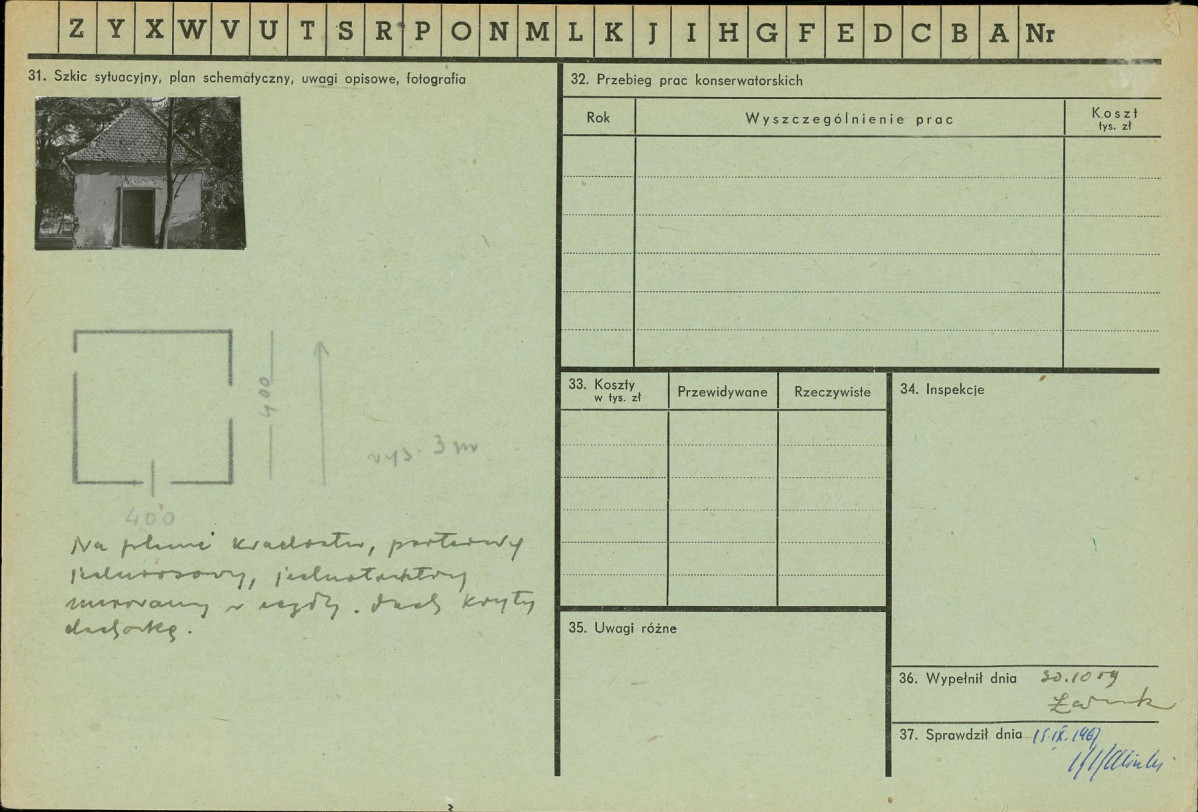 Z Y X W V U T S R P O N M L K J I H G F E D C B A Nr
31. Szkic sytuacyjny, plan schematyczny, uwagi opisowe, fotografia
400
wys. 3 m
400
Na planie kwadratu, parterowy
jednoosiowy, jednotraktowy
murowany z cegły. Dach kryty
dachówką.
32. Przebieg prac konserwatorskich
Rok
Wyszczególnienie prac
Koszt
tys. zł
33. Koszty
w tys. zł
Przewidywane
Rzeczywiste
34. Inspekcje
35. Uwagi różne
36. Wypełnił dnia 30.10 59
37. Sprawdził dnia 15.IX.1961